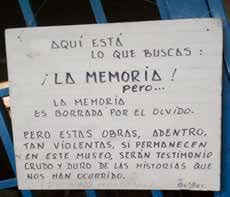 AQUÍ ESTÁ
LO QUE BUSCAS:
¡LA MEMORIA!
pero...
LA MEMORIA
ES BORRADA POR EL OLVIDO.
PERO ESTAS OBRAS, ADENTRO,
TAN VIOLENTAS, SI PERMANECEN
EN ESTE MUSEO, SERÁN TESTIMONIO
CRUDO Y DURO DE LAS HISTORIAS QUE
NOS HAN OCURRIDO.